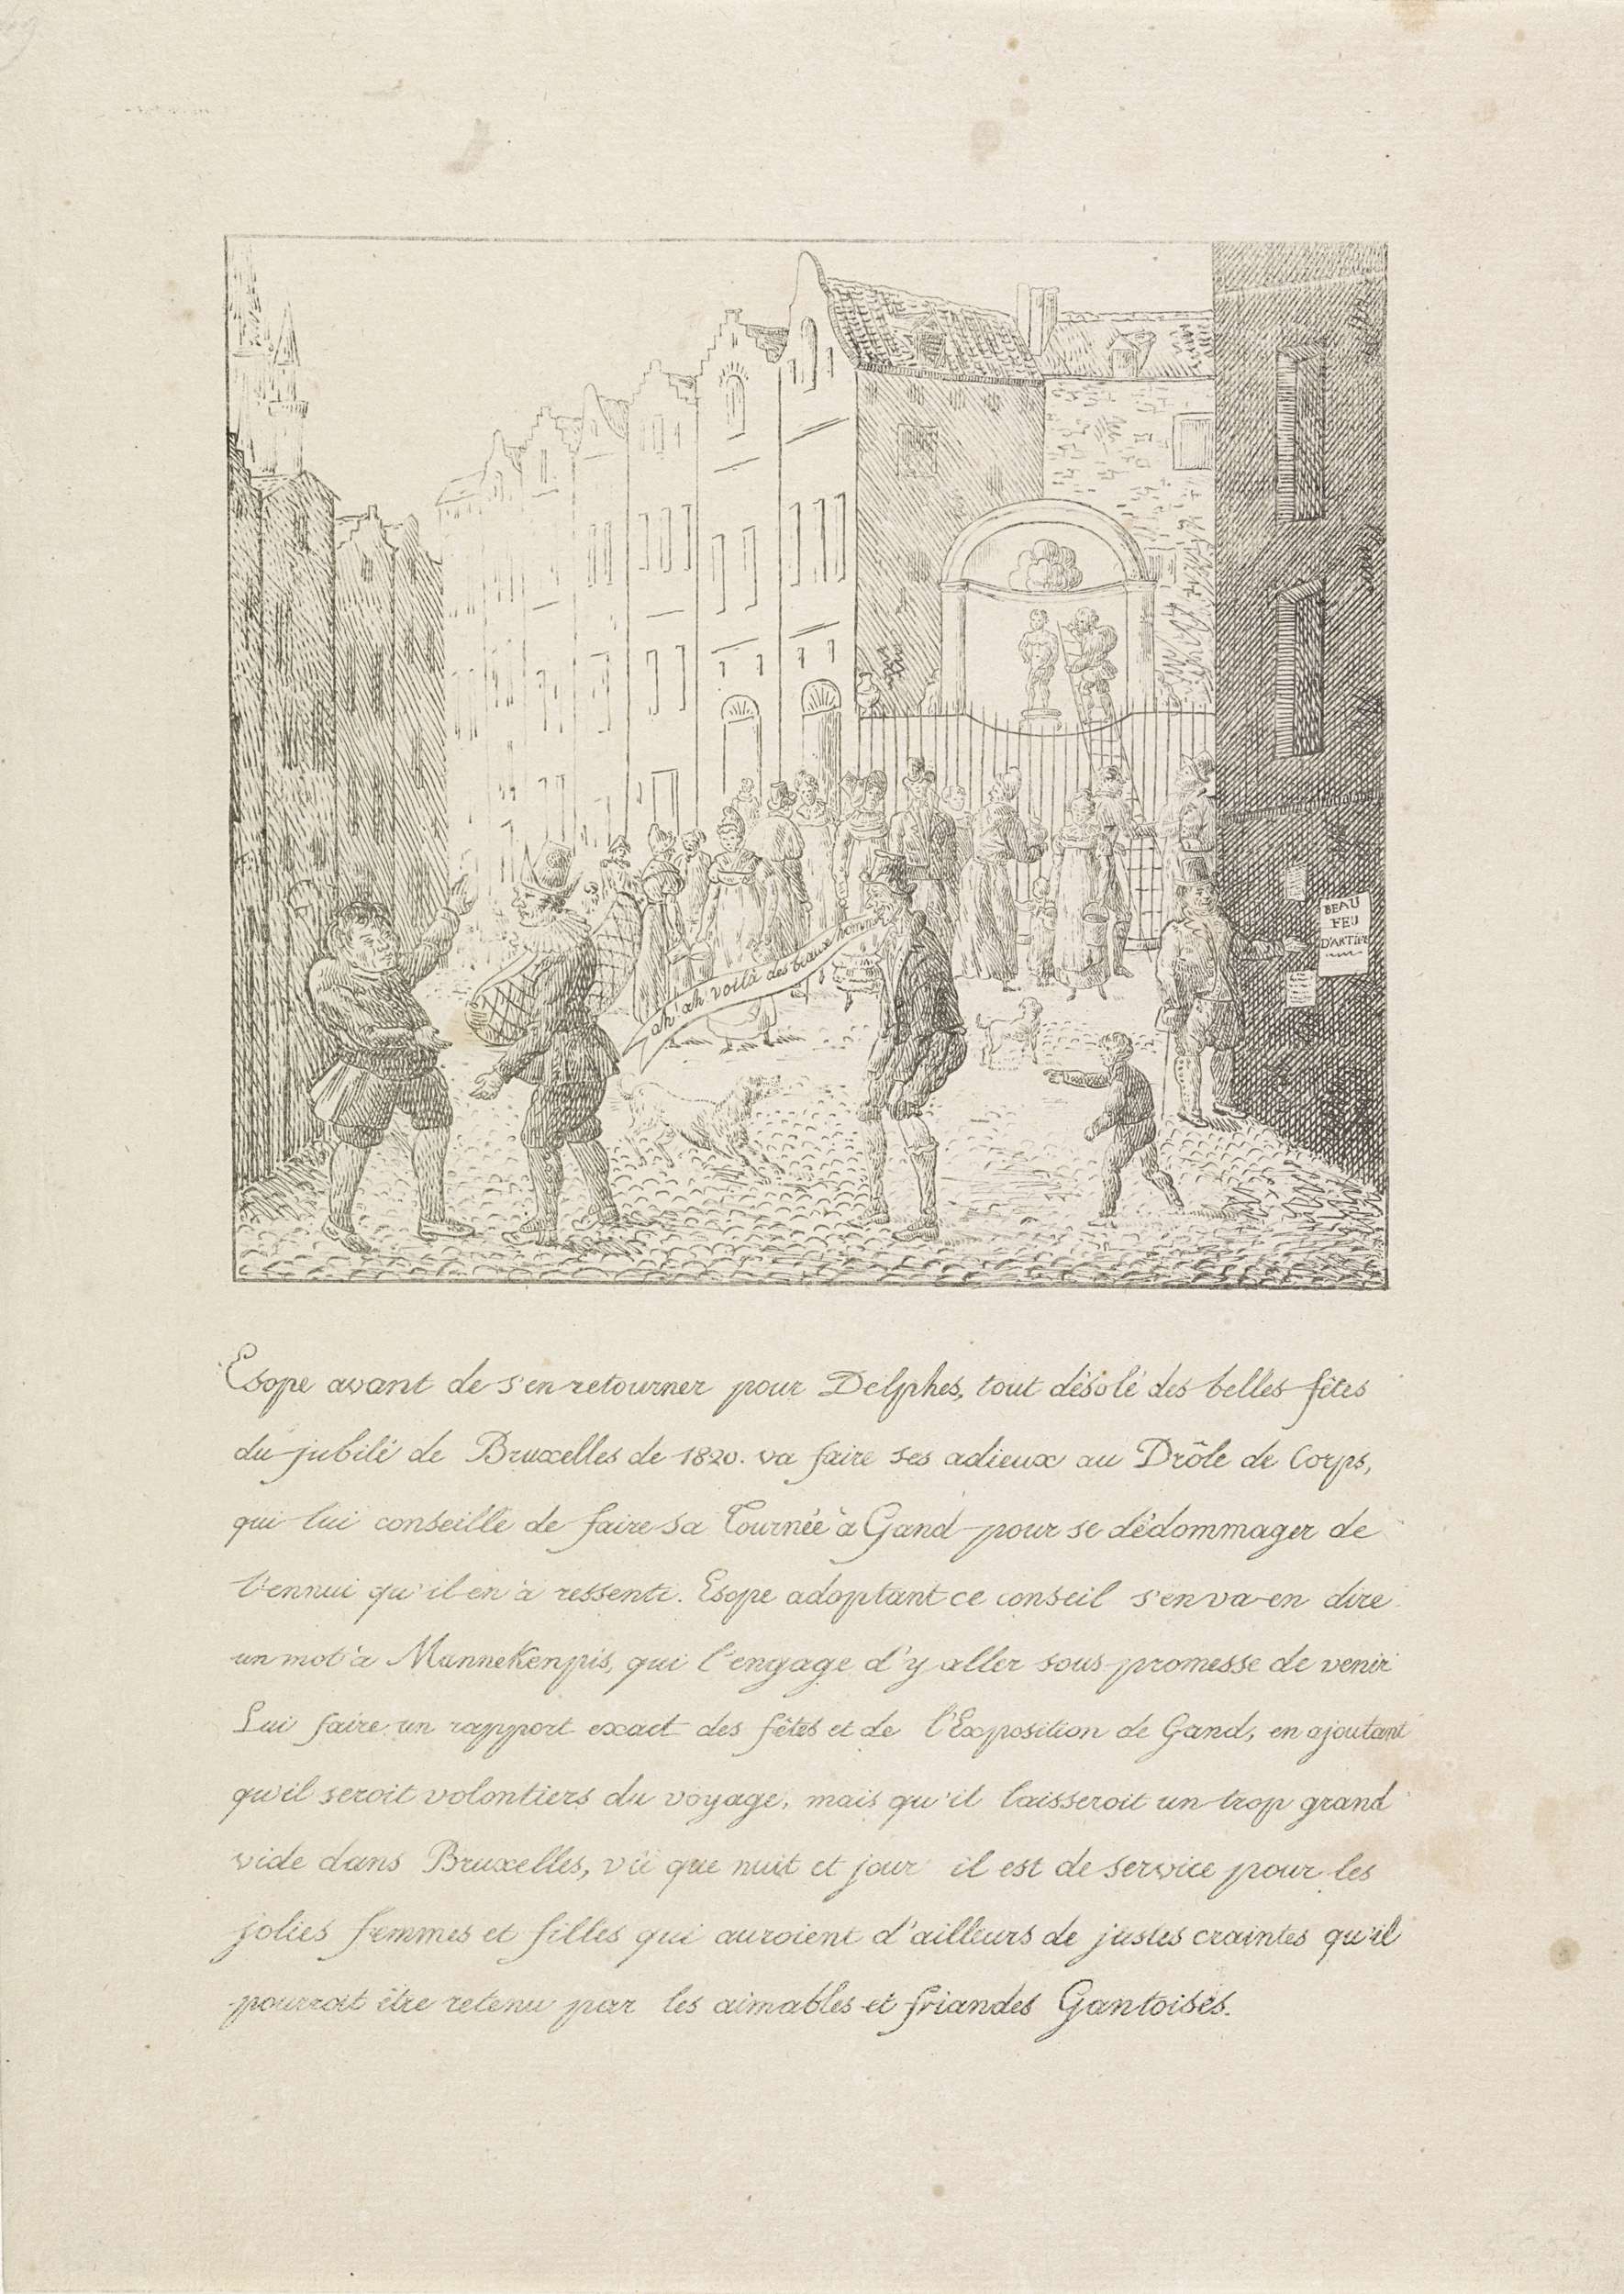 BEAU
FEU
D'ARTIFI
ah! ah voilà des beaux hommes
Esope avant de s'en retourner pour Delphes, tout désolé des belles fêtes
du jubilé de Bruxelles de 1820. va faire ses adieux au Drôle de Corps,
qui lui conseille de faire sa Tournée à Gand pour se dédommager de
l'ennui qu'il en à ressenti. Esope adoptant ce conseil s'en va en dire
un mot à ManneKenpis, qui l'engage d'y aller sous promesse de venir
Lui faire un rapport exact des fêtes et de l'Exposition de Gand, en ajoutant
qu'il seroit volontiers du voyage, mais qu'il laisseroit un trop grand
vide dans Bruxelles, vû que nuit et jour il est de service pour les
jolies femmes et filles qui auroient d'ailleurs de justes craintes qu'il
pourroit être retenu par les aimables et friandes Gantoises.